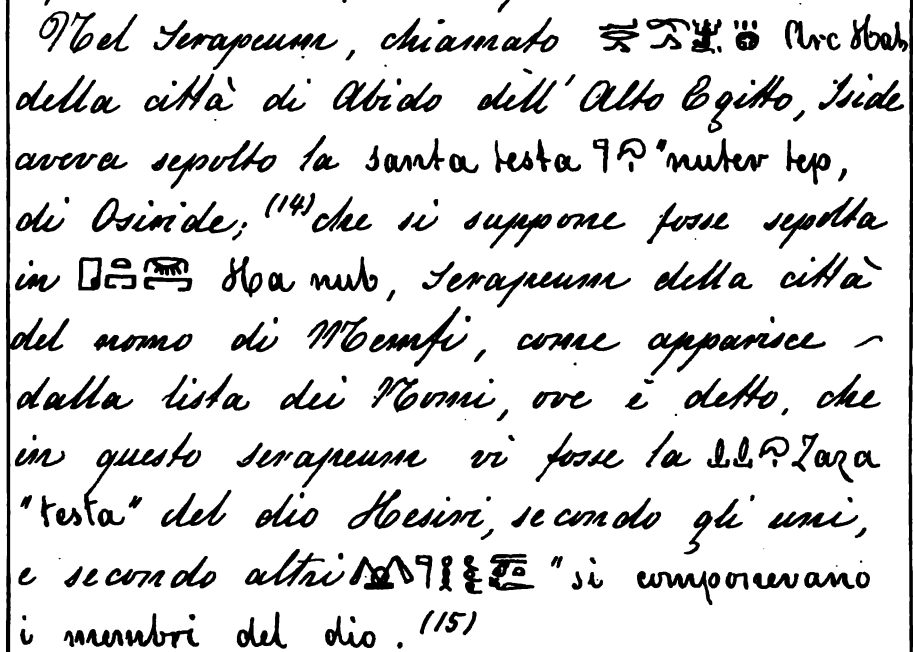 Nel Serapeum, chiamato Arc Hab
della città di Abido dell' Alto Egitto, Iside
aveva sepolto la santa testa "nuter tep,
di Osiride; (14) che si suppone fosse sepolta
in Ha nub, Serapeum della città
del nomo di Memfi, come apparisce
dalla lista dei Nomi, ove è detto, che
in questo serapeum vi fosse la Zaza
"testa" del dio Hesiri, secondo gli uni,
e secondo altri "si componevano
i membri del dio. (15)